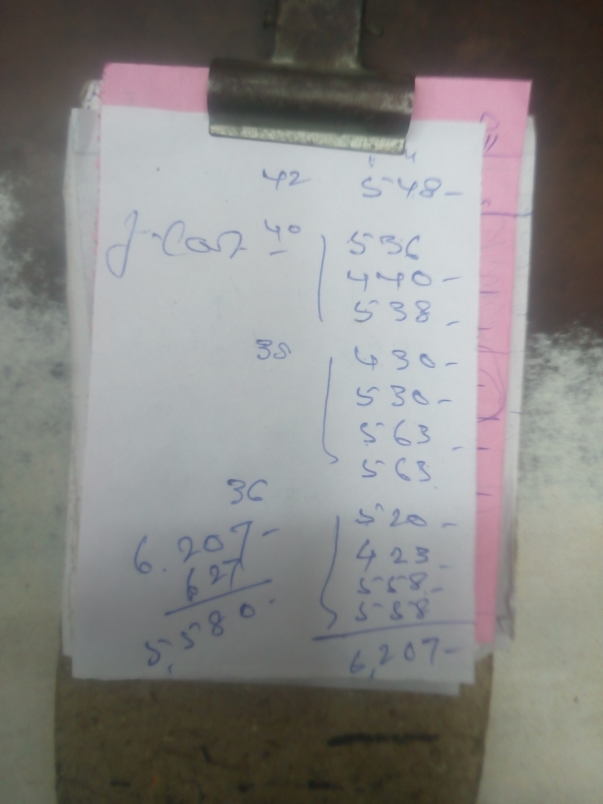 42 548-
40 536
440-
538-
38 430-
530-
563-
563
36
520-
6.207- 423-
627 558-
5,580- 558
6,207-